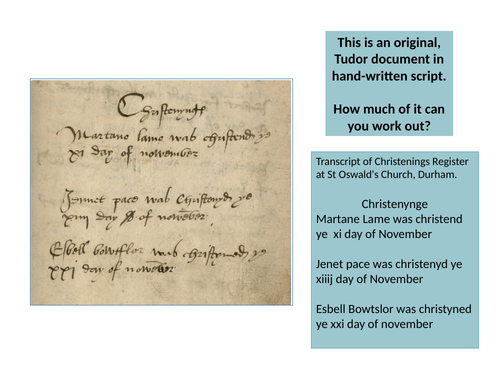 Christenynge
Martane lame was christend ye
xi day of november
Jennet pace was Christenyd ye
xiiij day of november
Esbell was christyned ye
xxi day of november
This is an original,
Tudor document in
hand-written script.
How much of it can
you work out?
Transcript of Christenings Register
at St Oswald's Church, Durham.
Christenynge
Martane Lame was christend
ye xi day of November
Jenet pace was christenyd ye
xiiij day of November
Esbell Bowtslor was christyned
ye xxi day of november